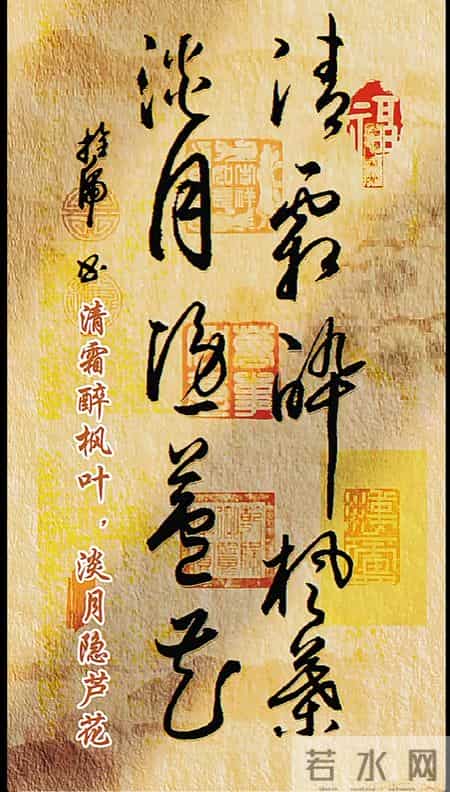 福
清霜醉枫葉
淡月隐蘆花
书
清霜醉枫叶，淡月隐芦花
若水网